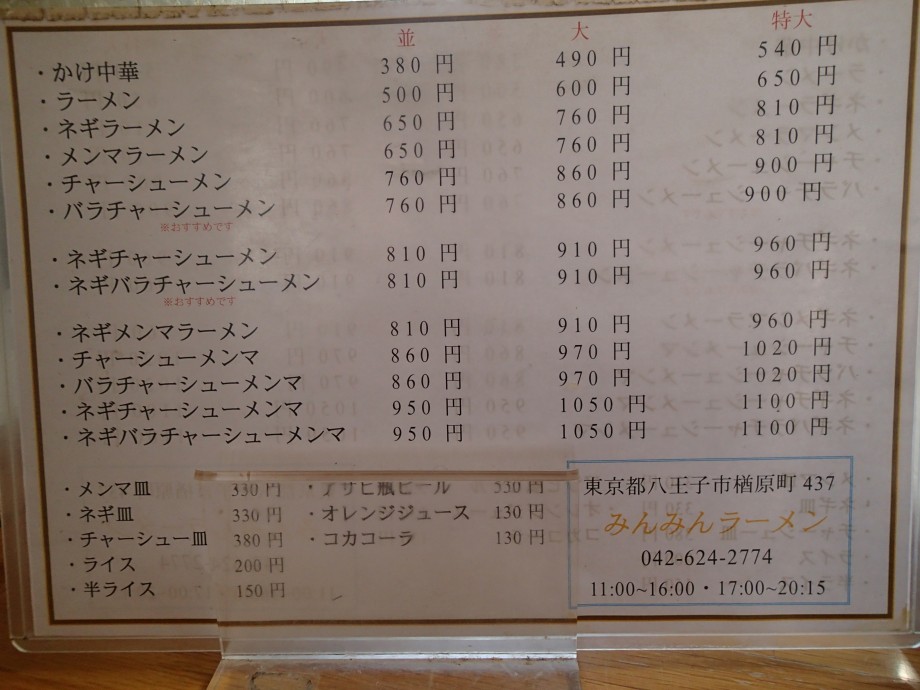 並 大 特大
・かけ中華 380 円 490 円 540 円
・ラーメン 500 円 600 円 650 円
・ネギラーメン 650 円 760 円 810 円
・メンマラーメン 650 円 760 円 810 円
・チャーシューメン 760 円 860 円 900 円
・バラチャーシューメン 760 円 860 円 900 円
※おすすめです
・ネギチャーシューメン 810 円 910 円 960 円
・ネギバラチャーシューメン 810 円 910 円 960 円
※おすすめです
・ネギメンマラーメン 810 円 910 円 960 円
・チャーシューメンマ 860 円 970 円 1020 円
・バラチャーシューメンマ 860 円 970 円 1020 円
・ネギチャーシューメンマ 950 円 1050 円 1100 円
・ネギバラチャーシューメンマ 950 円 1050 円 1100 円
・メンマ皿 330 円 ・アサヒ瓶ビール 530 円
・ネギ皿 330 円 ・オレンジジュース 130 円
・チャーシュー皿 380 円 ・コカコーラ 130 円
・ライス 200 円
・半ライス 150 円
東京都八王子市楢原町 437
みんみんラーメン
042-624-2774
11:00~16:00・17:00~20:15